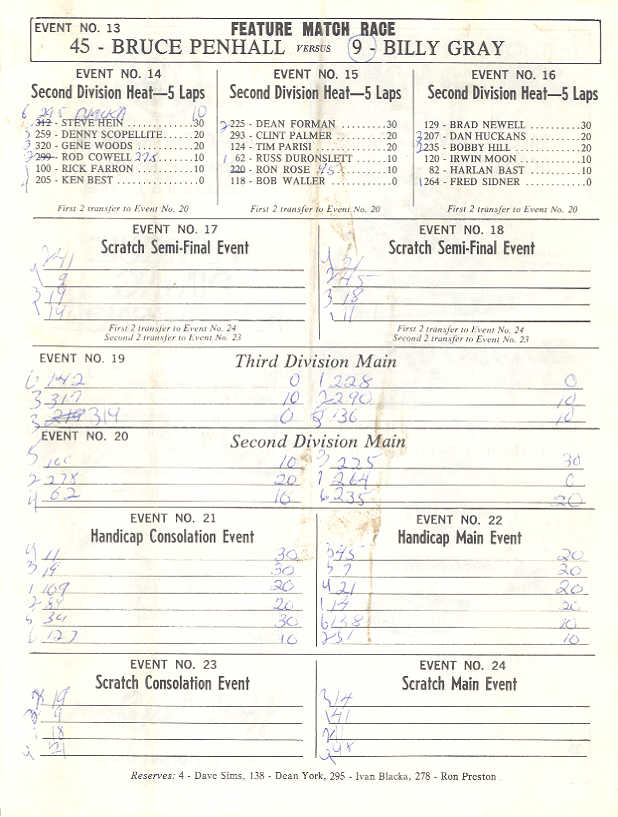 EVENT NO. 13
FEATURE MATCH RACE
45 - BRUCE PENHALL VERSUS 9 - BILLY GRAY
EVENT NO. 14
Second Division Heat—5 Laps
6 295 BLACKA 10
312 - STEVE HEIN 30
259 - DENNY SCOPELLITE 20
320 - GENE WOODS 20
299 - ROD COWELL 278 10
100 - RICK FARRON 10
205 - KEN BEST 0
First 2 transfer to Event No. 20
EVENT NO. 15
Second Division Heat—5 Laps
225 - DEAN FORMAN 30
293 - CLINT PALMER 20
124 - TIM PARISI 20
1 62 - RUSS DURONSLETT 10
220 - RON ROSE 10
118 - BOB WALLER 0
First 2 transfer to Event No. 20
EVENT NO. 16
Second Division Heat—5 Laps
129 - BRAD NEWELL 30
207 - DAN HUCKANS 20
235 - BOBBY HILL 20
120 - IRWIN MOON 10
82 - HARLAN BAST 10
1 264 - FRED SIDNER 0
First 2 transfer to Event No. 20
EVENT NO. 17
Scratch Semi-Final Event
41
9
3 19
14
First 2 transfer to Event No. 24
Second 2 transfer to Event No. 23
EVENT NO. 18
Scratch Semi-Final Event
21
45
3 18
11
First 2 transfer to Event No. 24
Second 2 transfer to Event No. 23
EVENT NO. 19
Third Division Main
6 142 0 1 228 0
3 317 10 2 290 10
3 219 314 0 5 136 10
EVENT NO. 20
Second Division Main
5 100 10 3 225 30
2 278 20 1 264 0
4 62 10 6 235 20
EVENT NO. 21
Handicap Consolation Event
4 11 30
3 19 30
1 109 20
2 84 20
5 34 30
6 127 10
EVENT NO. 22
Handicap Main Event
3 45 20
5 7 20
4 21 20
1 14 20
6 138 10
2 51 10
EVENT NO. 23
Scratch Consolation Event
19
9
18
21
EVENT NO. 24
Scratch Main Event
3 14
41
Reserves: 4 - Dave Sims, 138 - Dean York, 295 - Ivan Blacka, 278 - Ron Preston